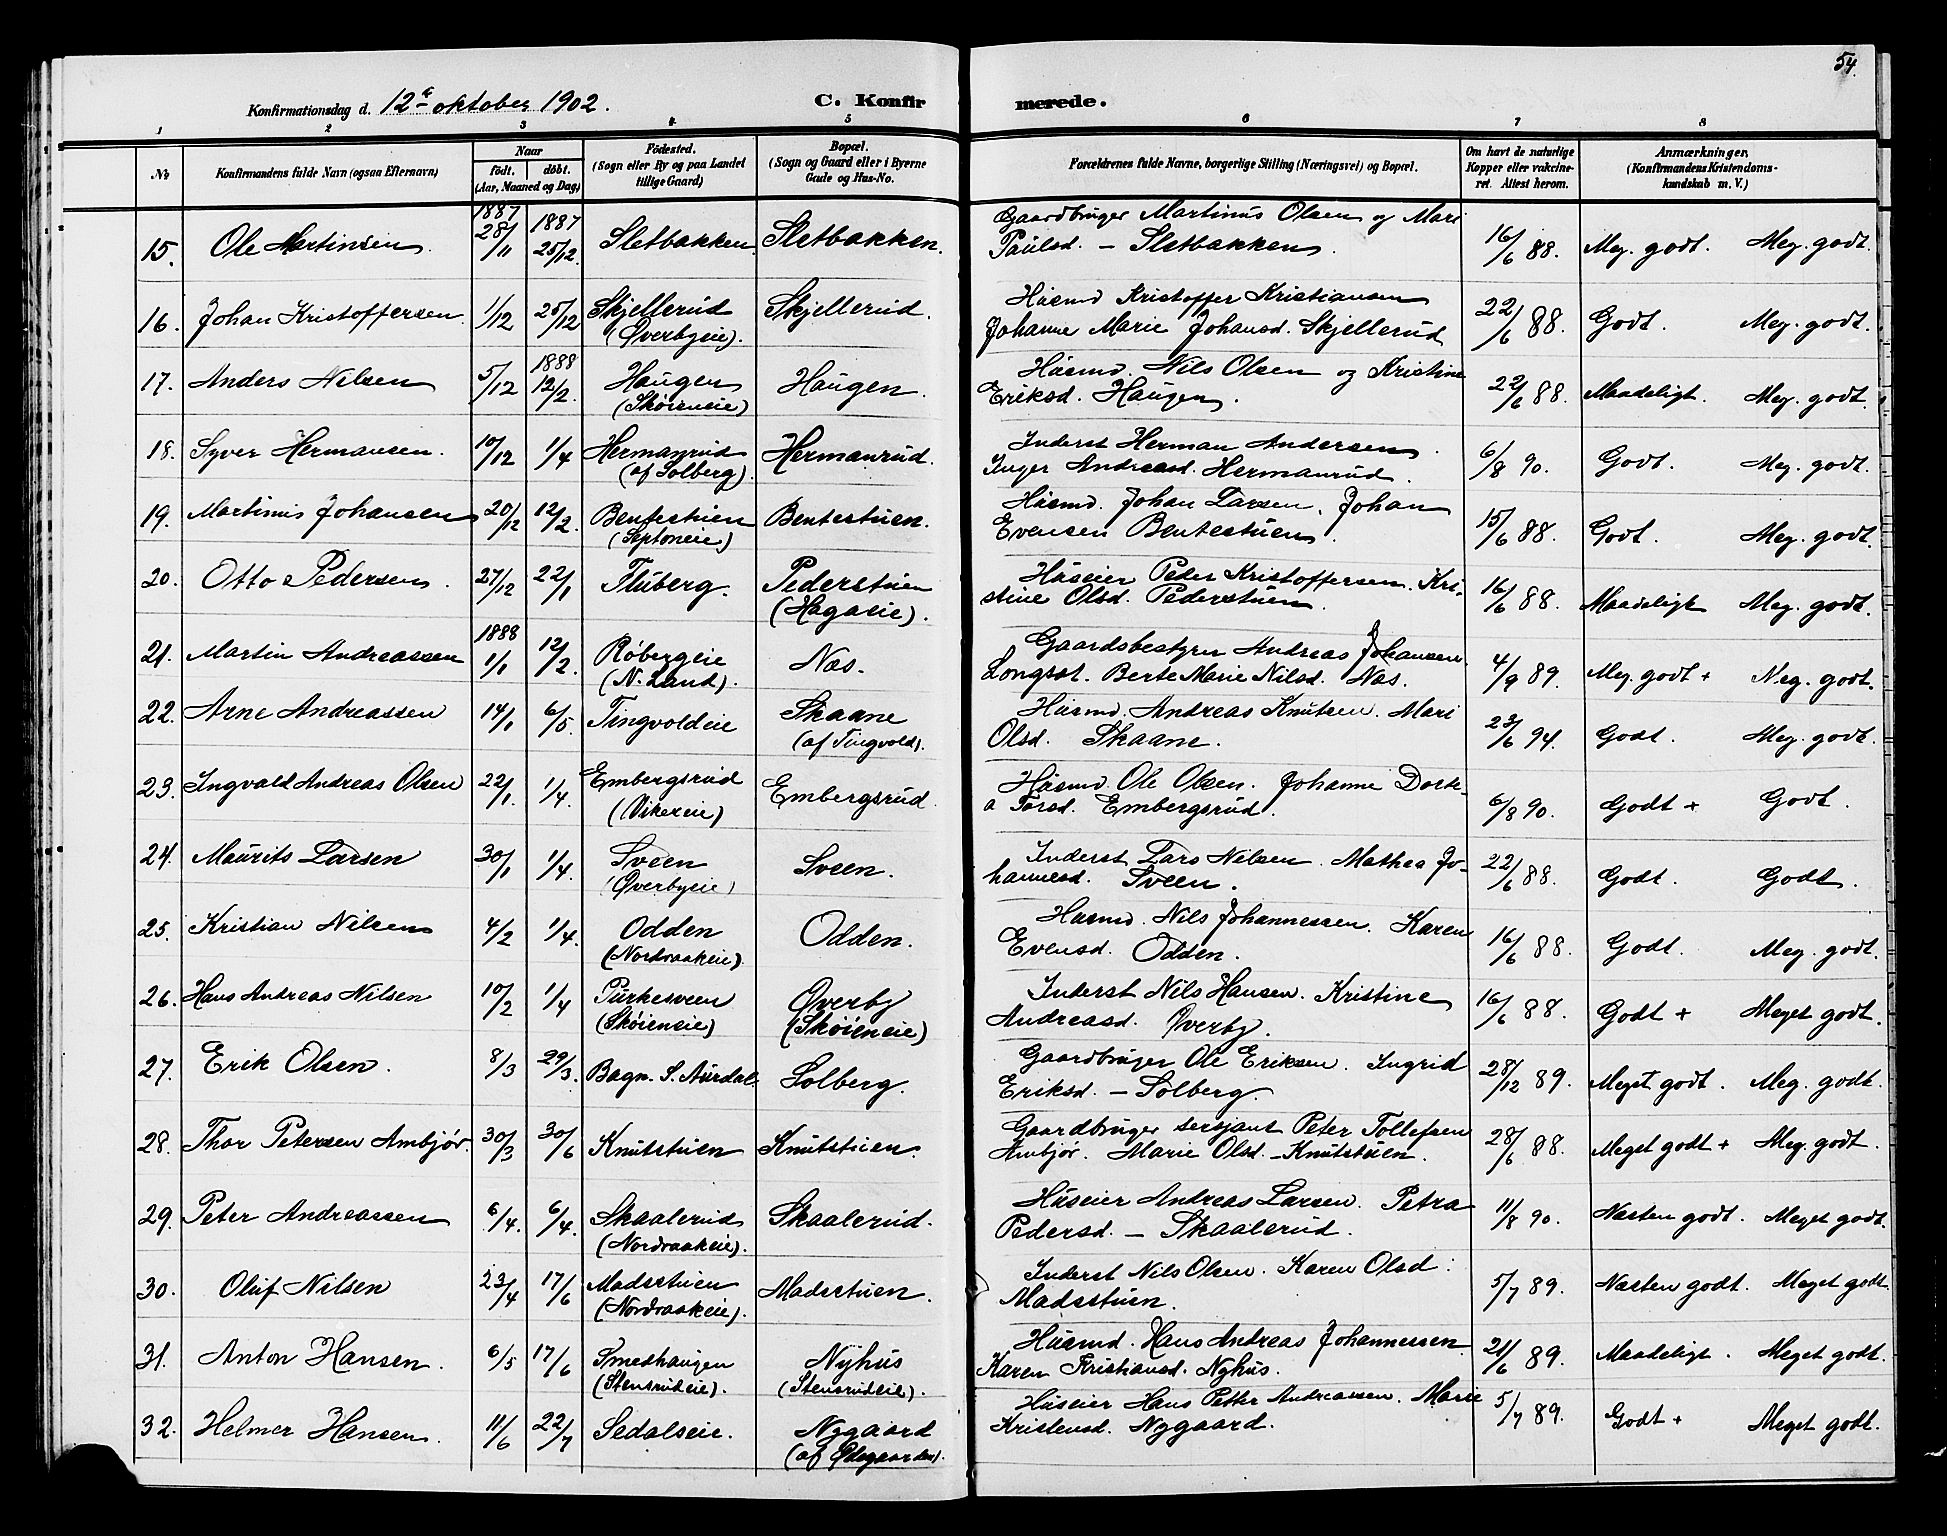 54.
Konfirmationsdag d. 12te oktober 1902. C. Konfirmerede.
1 2 3 4 5 6 7 8
No Konfirmandens fulde Navn (ogsaa Efternavn) Naar födt. döbt. (Aar, Maaned og Dag) Födested. (Sogn eller By og paa Landet tillige Gaard) Bopæl. (Sogn og Gaard eller i Byerne Gade og Hus-No. Forældrenes fulde Navne, borgerlige Stilling (Næringsvei) og Bopæl. Om havt de naturlige Kopper eller vakcineret. Attest herom. Anmærkninger, (Konfirmandens Kristendomskundskab m. V.)
15. Ole Martinsen. 1887 28/11 1887 25/12 Sletbakken Sletbakken. Gaardbruger Martinus Olsen og Mari Paulsd. – Sletbakken. 16/6 88. Meg. godt. Meg. godt.
16. Johan Kristoffersen. 1/12 25/12 Skjellerud (Øverbyeie). Skjellerud. Husmd Kristoffer Kristiansen Johanne Marie Johansd. Skjellerud 22/6 88. Godt. Meg. godt.
17. Anders Nilsen 5/12 1888 12/2. Haugen (Skøieneie) Haugen. Husmd. Nils Olsen og Kristine Eriksd. Haugen. 22/6 88. Maadeligt. Meg. godt.
18. Syver Hermansen. 10/12 1/4 Hermanrud (af Solberg). Hermanrud. Inderst Herman Andersen. Inger Andreasd. Hermanrud. 6/8 90. Godt. Meg. godt.
19. Martinus Johansen 20/12 12/2. Bentestuen (Septoneie) Bentestuen. Husmd. Johan Larsen, Johan Evensen Bentestuen. 15/6 88. Godt. Meg. godt.
20. Otto Pedersen. 27/12 22/1 Fluberg. Pederstuen (Hagaeie). Huseier Peter Kristoffersen. Kristine Olsd. Pederstuen. 16/6 88. Maadeligt Meg. godt.
21. Martin Andreassen 1888 1/1 12/2. Røbergeie (N. Land). Næs. Gaardsbestyrer Andreas Johansen Longsæt. Berte Marie Nilsd. Næs. 4/9 89. Meg. godt + Meg. godt.
22. Arne Andreassen 14/1 6/5. Tingvoldeie Skaane (af Tingvold). Husmd. Andreas Knutsen. Mari Olsd. Skaane. 23/6 94. Godt. Meg. godt.
23. Ingvald Andreas Olsen 22/1. 1/4. Embergsrud (Vikereie) Embergsrud. Husmd Ole Olsen. Johanne Dorte a Torsd. Embergsrud. 6/8 90. Godt + Godt.
24. Maurits Larsen 30/1 1/4. Sveen (Øverbyeie) Sveen. Inderst Lars Nilsen. Mathea Johannesd. Sveen. 22/6 88. Godt. Godt.
25. Kristian Nilsen 4/2 1/4. Odden (Nordraakeie). Odden. Husmd. Nils Johannessen. Karen Evensd. Odden. 16/6 88. Godt. Meg. godt.
26. Hans Andreas Nilsen 10/2 1/4 Purkesveen (Skøieneie) Øverby (Skøieneie) Inderst Nils Hansen. Kristine Andreasd. Øverby. 16/6 88. Godt + Meget godt.
27. Erik Olsen. 8/3 29/3. Bagn. S. Aurdal Solberg. Gaardbruger Ole Eriksen. Ingrid Eriksd. – Solberg. 28/12 89. Meget godt. Meg. godt.
28. Thor Petersen Ambjør. 30/3 30/6 Knutstuen Knutstuen. Gaardbruger sersjant Peter Tollefsen Ambjør. Marie Olsd. – Knutstuen. 28/6 88. Meget godt + Meg. godt.
29. Peter Andreassen 6/4. 6/4. Skaalerud (Nordraakeie). Skaalerud. Huseier Andreas Larsen. Petra Pedersd. – Skaalerud. 11/8 90. Næsten godt. Meget godt.
30. Oluf Nilsen 23/4 17/6 Madsstuen (Nordraakeie). Madsstuen. Inderst Nils Olsen. Karen Olsd: Madsstuen. 5/7 89. Næsten godt. Meget godt.
31. Anton Hansen. 6/5 17/6 Smedhaugen (Stensrudeie). Nyhus (Stensrudeie). Husmd. Hans Andreas Johannessen. Karen Kristiansd. Nyhus. 21/6 89. Maadeligt. Meget godt.
32. Helmer Hansen. 11/6 22/7 Sedalseie. Nygaard (af Ødegaarden). Huseier Hans Petter Andreassen. Marie Kristensd. Nygaard. 5/7 89. Godt + Meget godt.